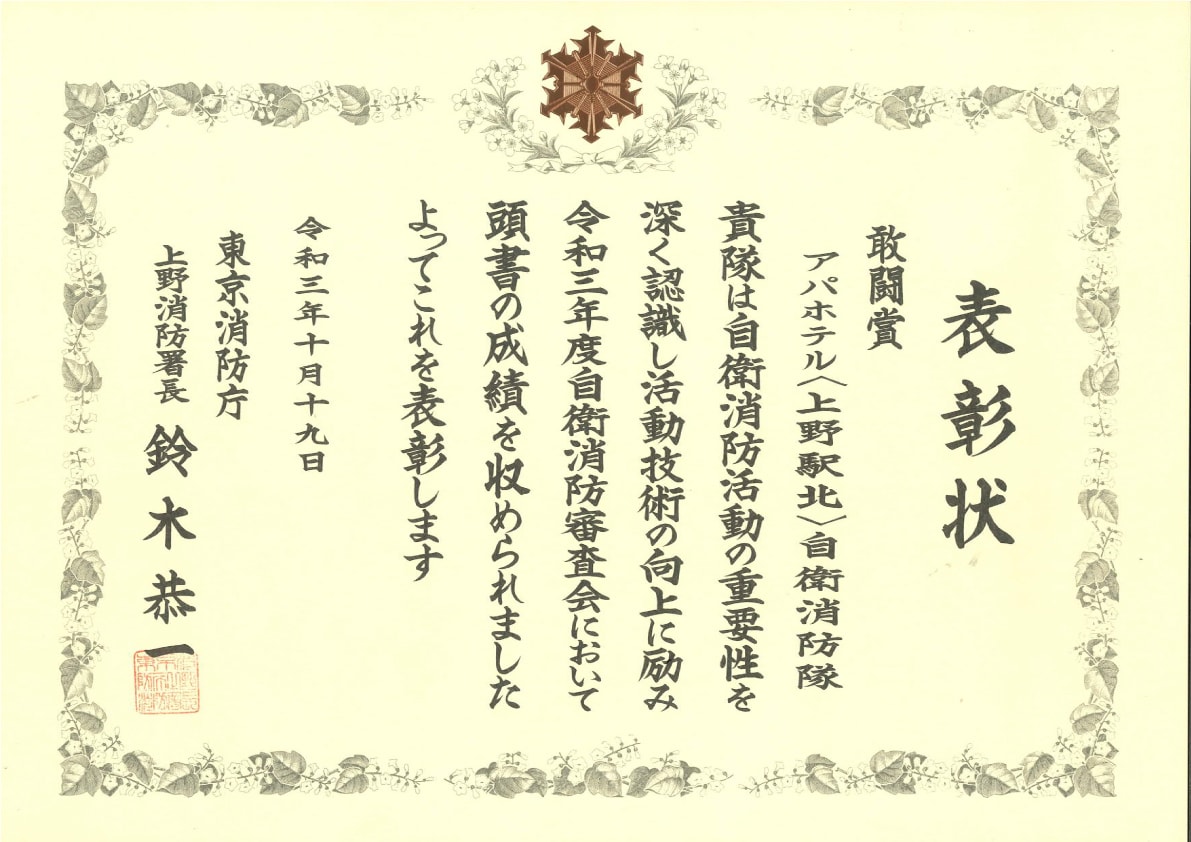 表彰状
敢闘賞
アパホテル〈上野駅北〉自衛消防隊
貴隊は自衛消防活動の重要性を
深く認識し活動技術の向上に励み
令和三年度自衛消防審査会において
頭書の成績を収められました
よってこれを表彰します
令和三年十月十九日
東京消防庁
上野消防署長 鈴木恭一